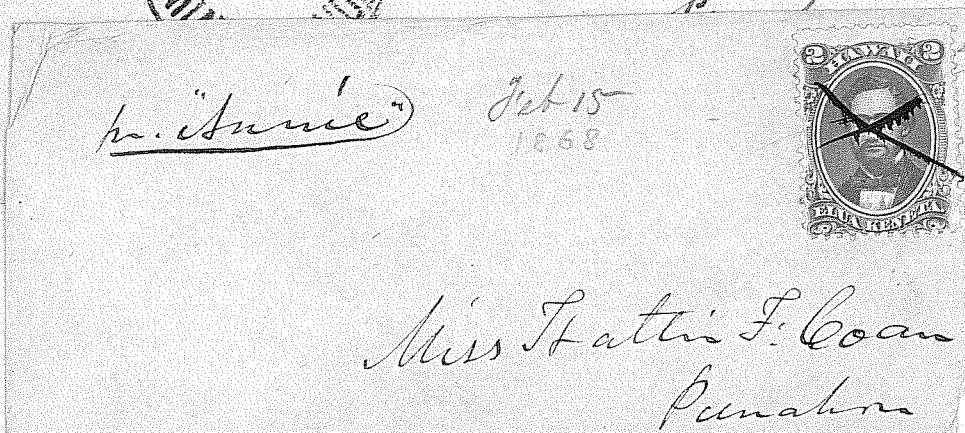 pr. "Annie"
Feb 15
1868
2 HAWAII 2
ELUA KENETA
Miss Hattie F. Coan
Punahou